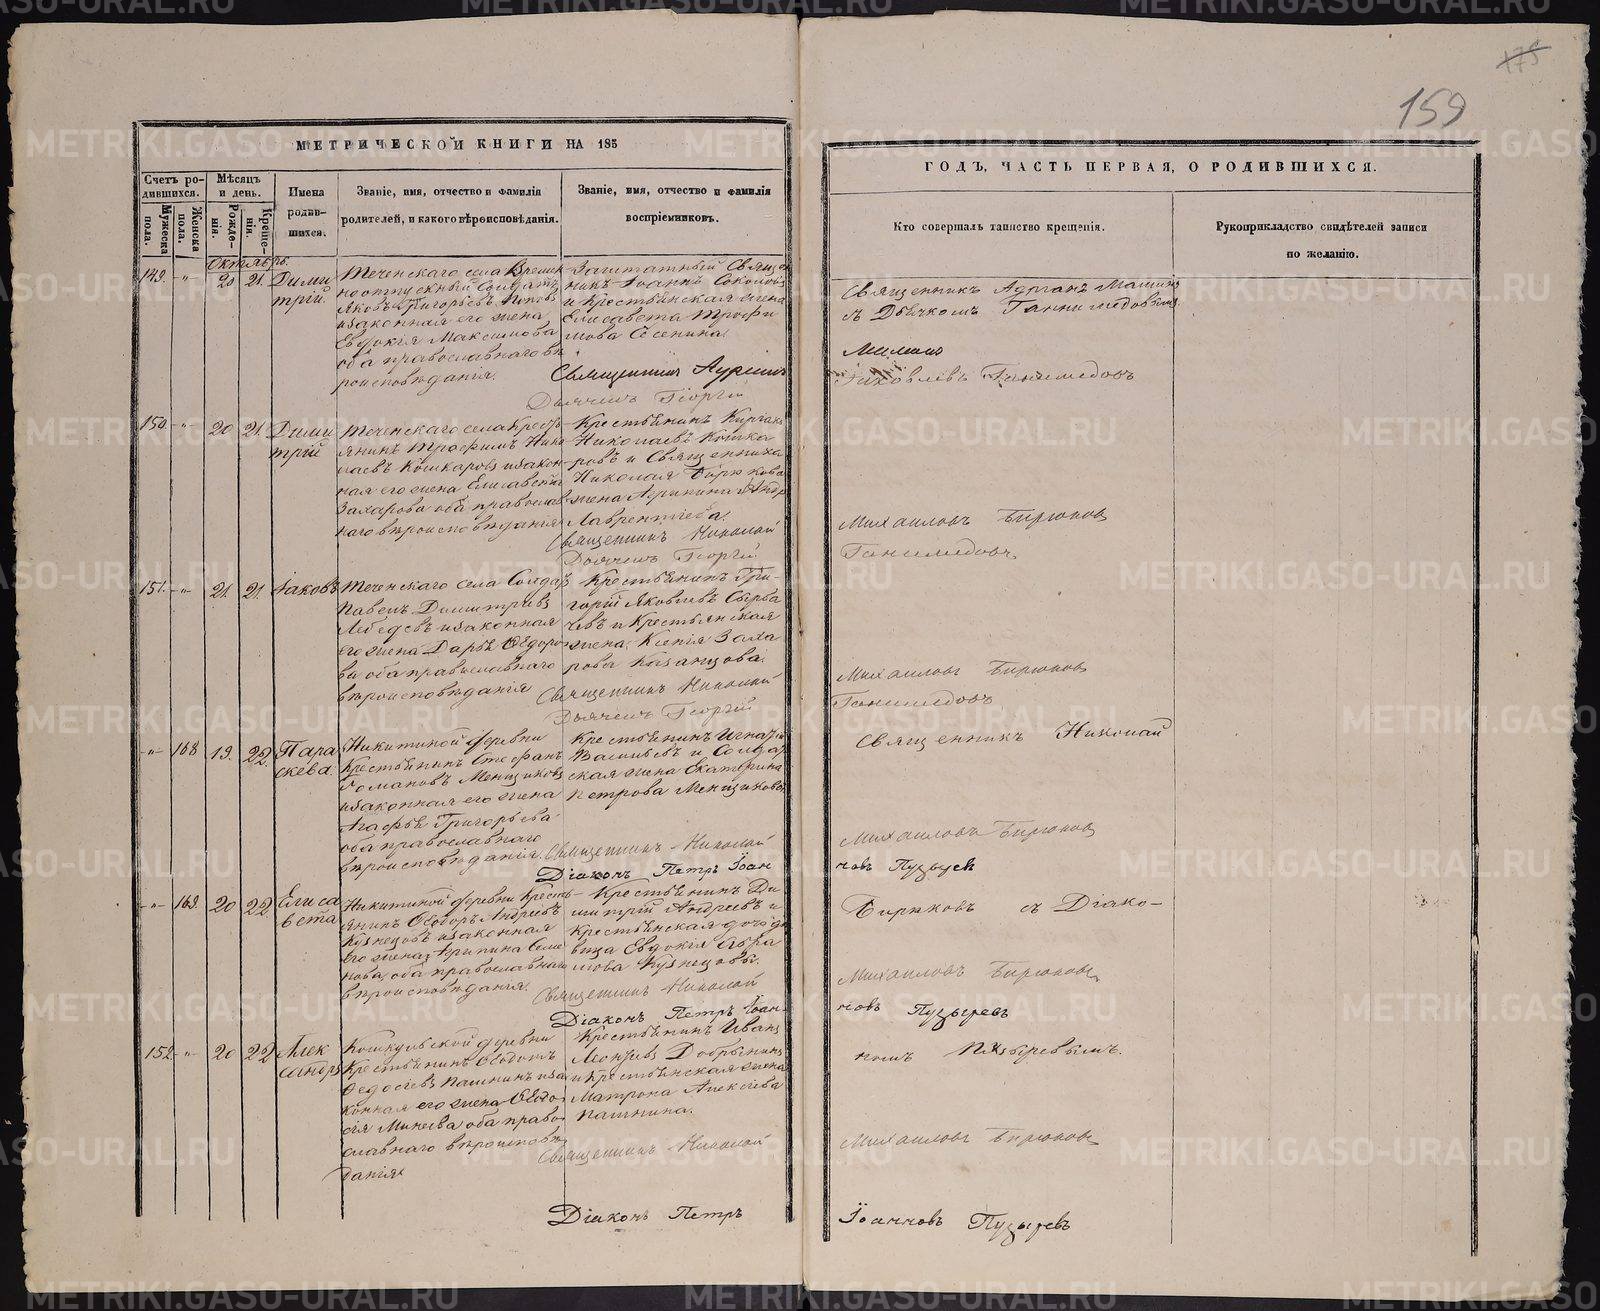 175
159
МЕТРИЧЕСКОЙ КНИГИ НА 185
ГОДЪ, ЧАСТЬ ПЕРВАЯ, О РОДИВШИХСЯ.
Счетъ ро-
дившихся.
Мужеска
пола.
Женска
пола.
Мѣсяцъ
и день.
Рожде-
нія.
Креще-
нія.
Имена
родив-
шихся.
Званіе, имя, отчество и фамилія
родителей, и какого вѣроисповѣданія.
Званіе, имя, отчество и фамилія
воспріемниковъ.
Кто совершалъ таинство крещенія.
Рукоприкладство свидѣтелей записи
по желанію.
Октябрь.
149. -"- 20 21. Дими
трій.
Теченскаго села
Солдатъ
Яковъ Григорьевъ Поповъ
и законная его жена
Евдокія Максимова
оба православнаго вѣ
роисповѣданія.
Заштатный Священ
никъ Іоаннъ Соколовъ
и крестьянская жена
Елисавета Трофи
мова
Священникъ
Дьячекъ Георгій
Священникъ
съ Дьячкомъ Ганимедовымъ
Яковлевъ Ганимедовъ
150. -"- 20 21. Дими
трій
Теченскаго села Кресть
янинъ Трофимъ Нико
лаевъ Кошкаровъ и закон
ная его жена Елисавета
Захарова оба православ
наго вѣроисповѣданія
Крестьянинъ
Николаевъ Кошка
ровъ и Священника
Николая Бирюкова
жена Агрипина
Лаврентіева.
Священникъ Николай
Дьячекъ Георгій
Михаиловъ Бирюковъ
Ганимедовъ
151. -"- 21. 21. Іаковъ
Теченскаго села Солдатъ
Павелъ Димитріевъ
Лебедевъ и законная
его жена Дарья Ѳедоро
ва оба православнаго
вѣроисповѣданія
Крестьянинъ Гри-
горій Яковлевъ
и Крестьянская
жена Ксенія Заха
рова Казанцова.
Священникъ Николай
Дьячекъ Георгій
Михаиловъ Бирюковъ
Ганимедовъ
-"- 168 19. 22. Пара
скева.
Никитиной деревни
Крестьянинъ Стефанъ
Романовъ Менщиковъ
и законная его жена
Агафья Григорьева
оба православнаго
вѣроисповѣданія.
Крестьянинъ Игнатій
Васильевъ и Солдат
ская жена Екатерина
Петрова Менщикова
Священникъ Николай
Діаконъ Петръ Іоан
Священникъ Николай
Михаиловъ Бирюковъ
новъ Пузыревъ
-"- 169. 20 22. Елиса
вета
Никитиной деревни Кресть
янинъ Ѳеодоръ Андреевъ
Кузнецовъ и законная
его жена Агрипина Семе
нова, оба православнаго
вѣроисповѣданія.
Крестьянинъ Ди
митрій Андреевъ и
крестьянская дочь дѣ
вица Евдокія Абра
мова Кузнецовы.
Священникъ Николай
Діаконъ Петръ Іоан-
Бирюковъ съ Діако-
Михаиловъ Бирюковъ
новъ Пузыревъ
152. -"- 20 22 Алек
сандръ
Кошкульской деревни
Крестьянинъ
Федосеевъ Пашнинъ и за
конная его жена Ѳеодо
сія Минеева оба право
славнаго вѣроисповѣ
данія
Крестьянинъ Иванъ
Леонтьевъ Добрынинъ
и Крестьянская жена
Матрона Алексѣева
Пашнина.
Священникъ Николай
Діаконъ Петръ
номъ Пузыревымъ.
Михаиловъ Бирюковъ
Іоанновъ Пузыревъ
METRIKI.GASO-URAL.RU